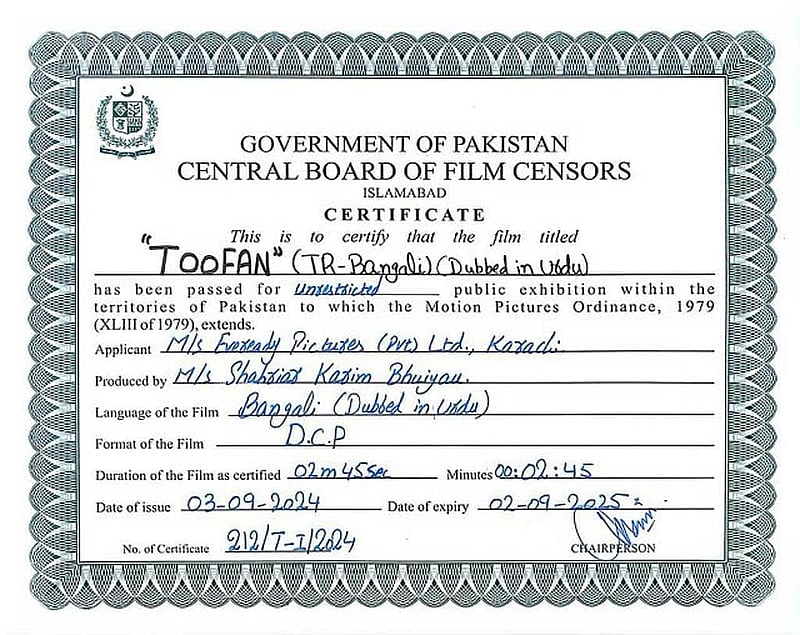 GOVERNMENT OF PAKISTAN
CENTRAL BOARD OF FILM CENSORS
ISLAMABAD
CERTIFICATE
This is to certify that the film titled
"TOOFAN" (TR-Bangali) (Dubbed in Urdu)
has been passed for Unrestricted public exhibition within the
territories of Pakistan to which the Motion Pictures Ordinance, 1979
(XLIII of 1979), extends.
Applicant M/s Eveready Pictures (Pvt) Ltd., Karachi
Produced by M/s Shahriar Karim Bhuiyan.
Language of the Film Bangali (Dubbed in Urdu)
Format of the Film D.C.P
Duration of the Film as certified 02m 45sec Minutes 00:02:45
Date of issue 03-09-2024 Date of expiry 02-09-2025
No. of Certificate 212/T-I/2024 CHAIRPERSON